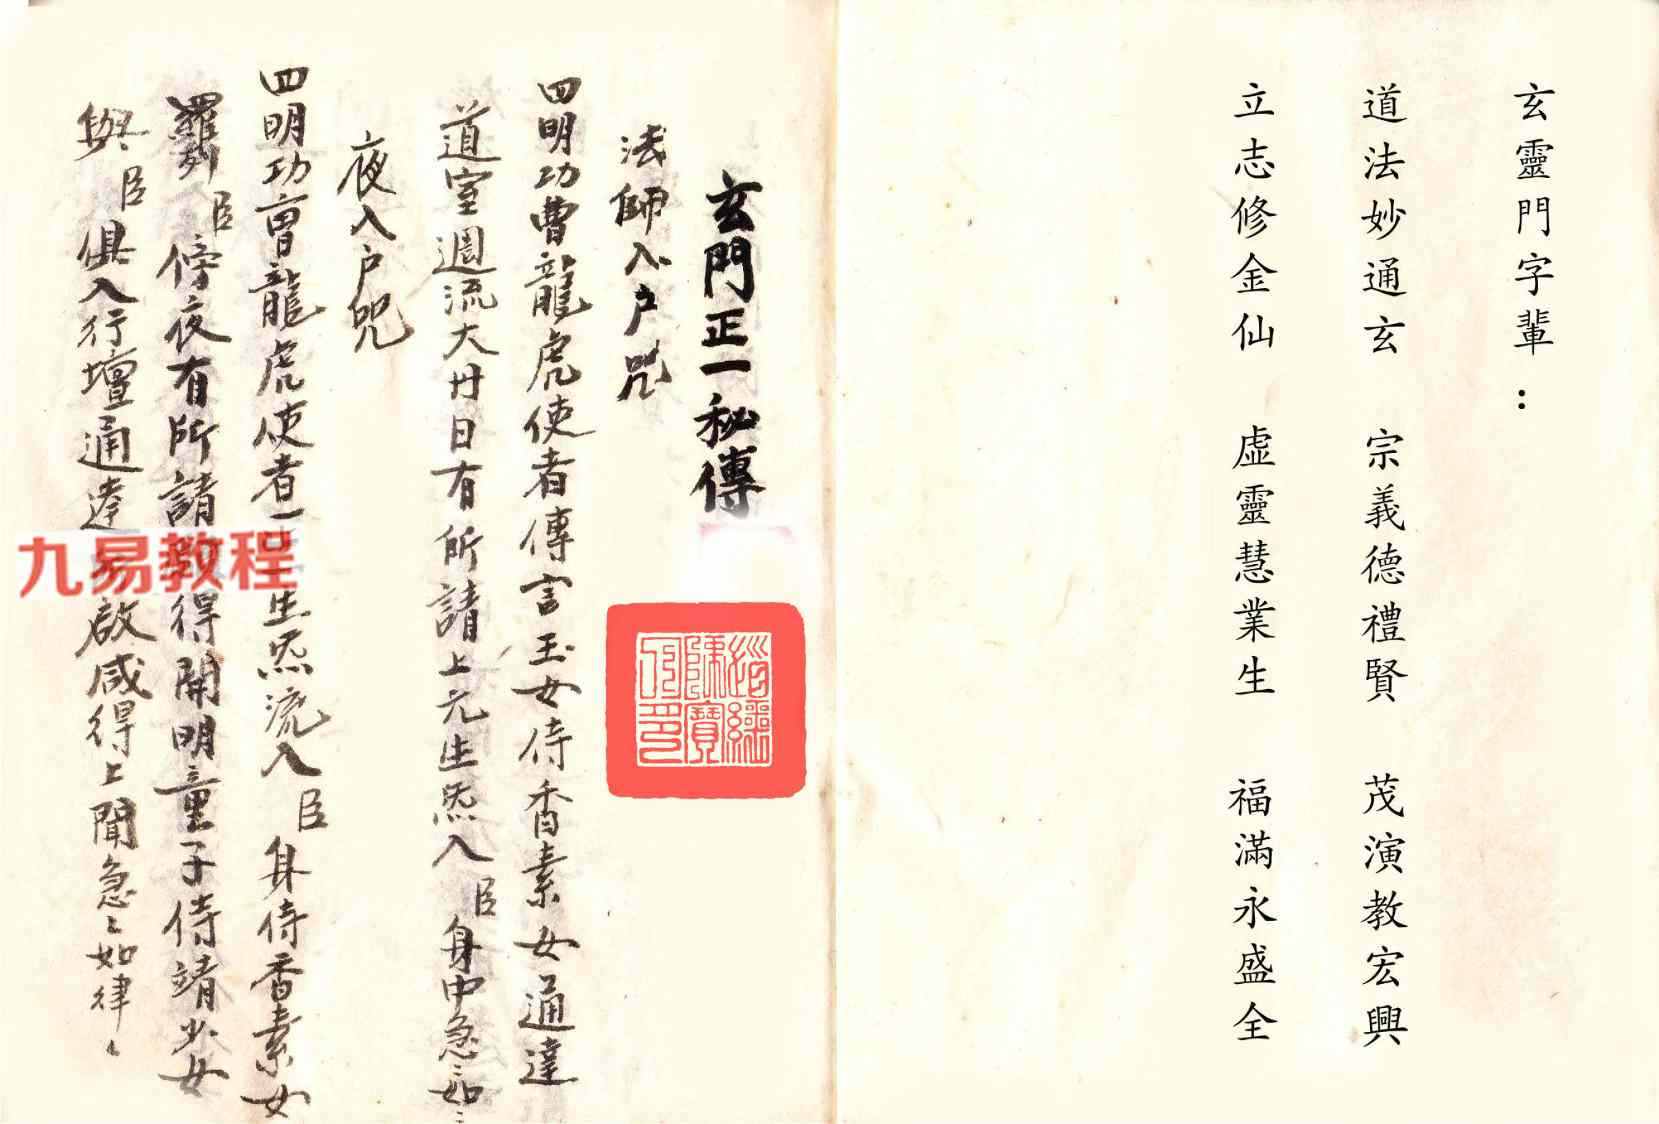 玄靈門字輩：
道法妙通玄 宗義德禮賢 茂演教宏興
立志修金仙 虛靈慧業生 福滿永盛全
玄門正一秘傳
道經師寶
法師入户咒
四明功曹龍虎使者傳言玉女侍香素女通達
道室週流大廿日有所請上元生炁入臣身中急〻如〻
夜入户咒
四明功曹龍虎使者一生炁流入臣身侍香素女
羅列臣傍夜有所請 得開明童子侍靖少女
與臣俱入行壇通達 啟咸得上聞急〻如律〻
九易教程